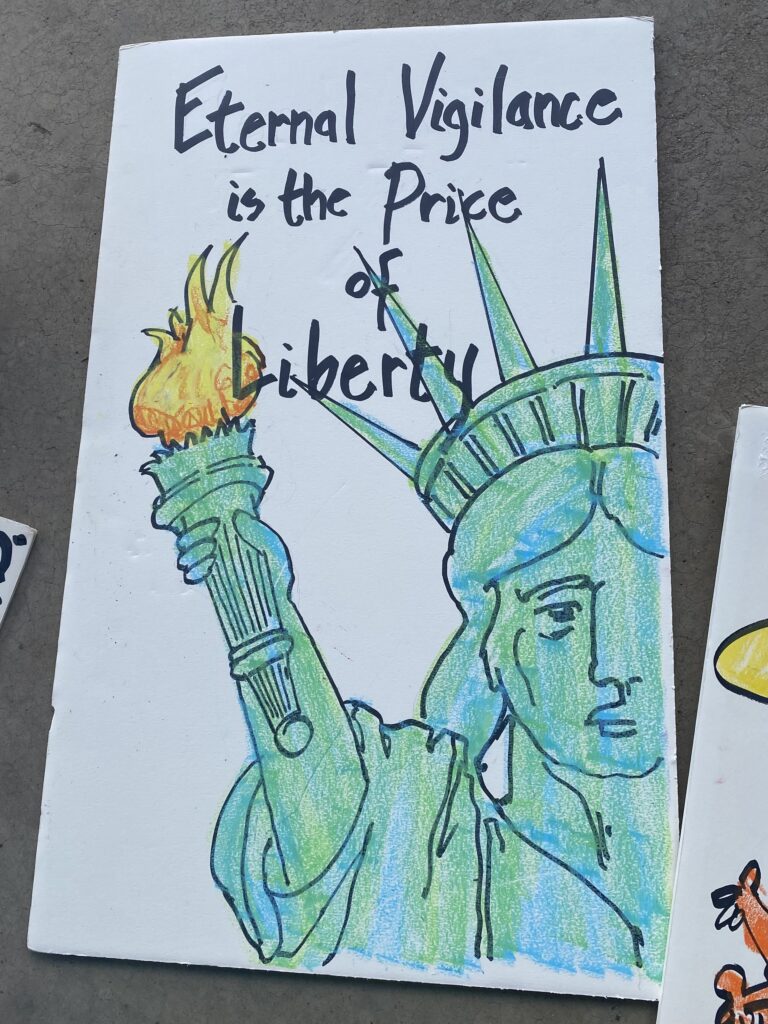 Eternal Vigilance
is the Price
of
Liberty